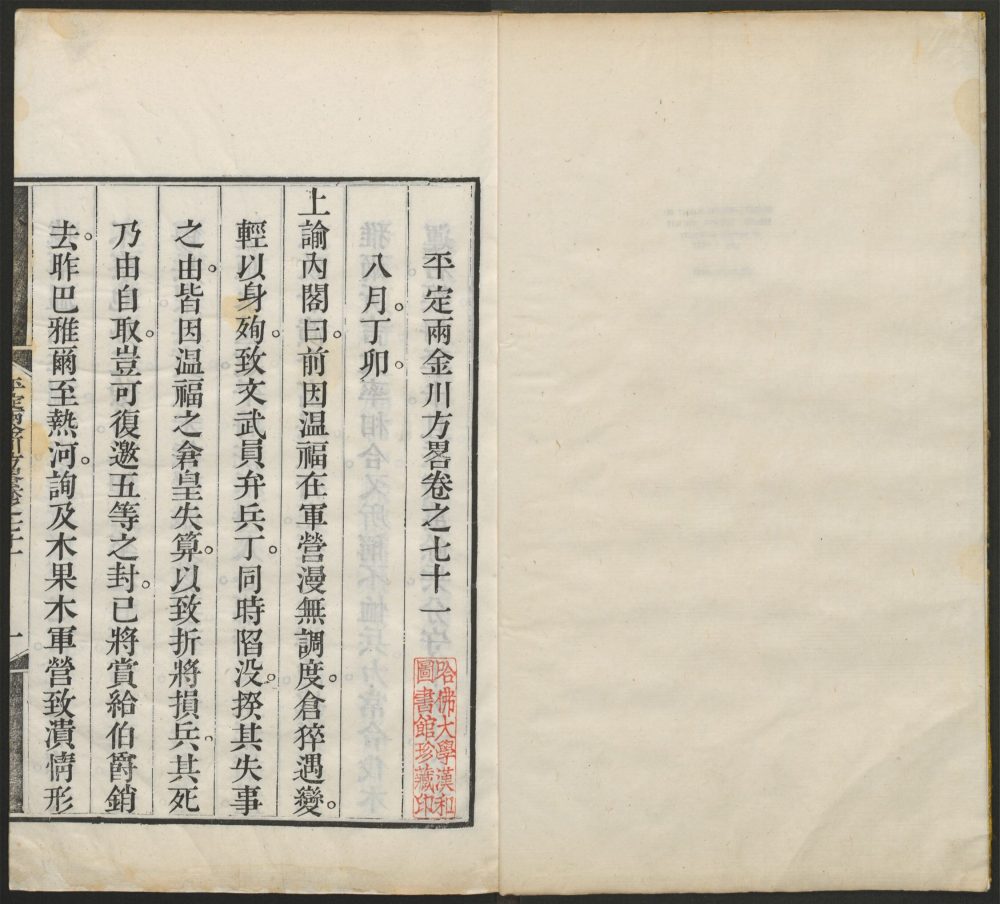 平定兩金川方畧卷之七十一
哈佛大學漢和
圖書館珍藏印
八月丁卯。
上諭內閣曰。前因温福在軍營漫無調度。倉猝遇變。
輕以身殉。致文武員弁兵丁。同時陷没。揆其失事
之由。皆因温福之倉皇失算。以致折將損兵。其死
乃由自取。豈可復邀五等之封。已將賞給伯爵銷
去。昨巴雅爾至熱河。詢及木果木軍營致潰情形